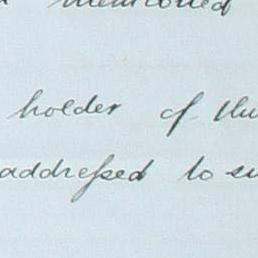 mentioned
holder of the
addressed to su